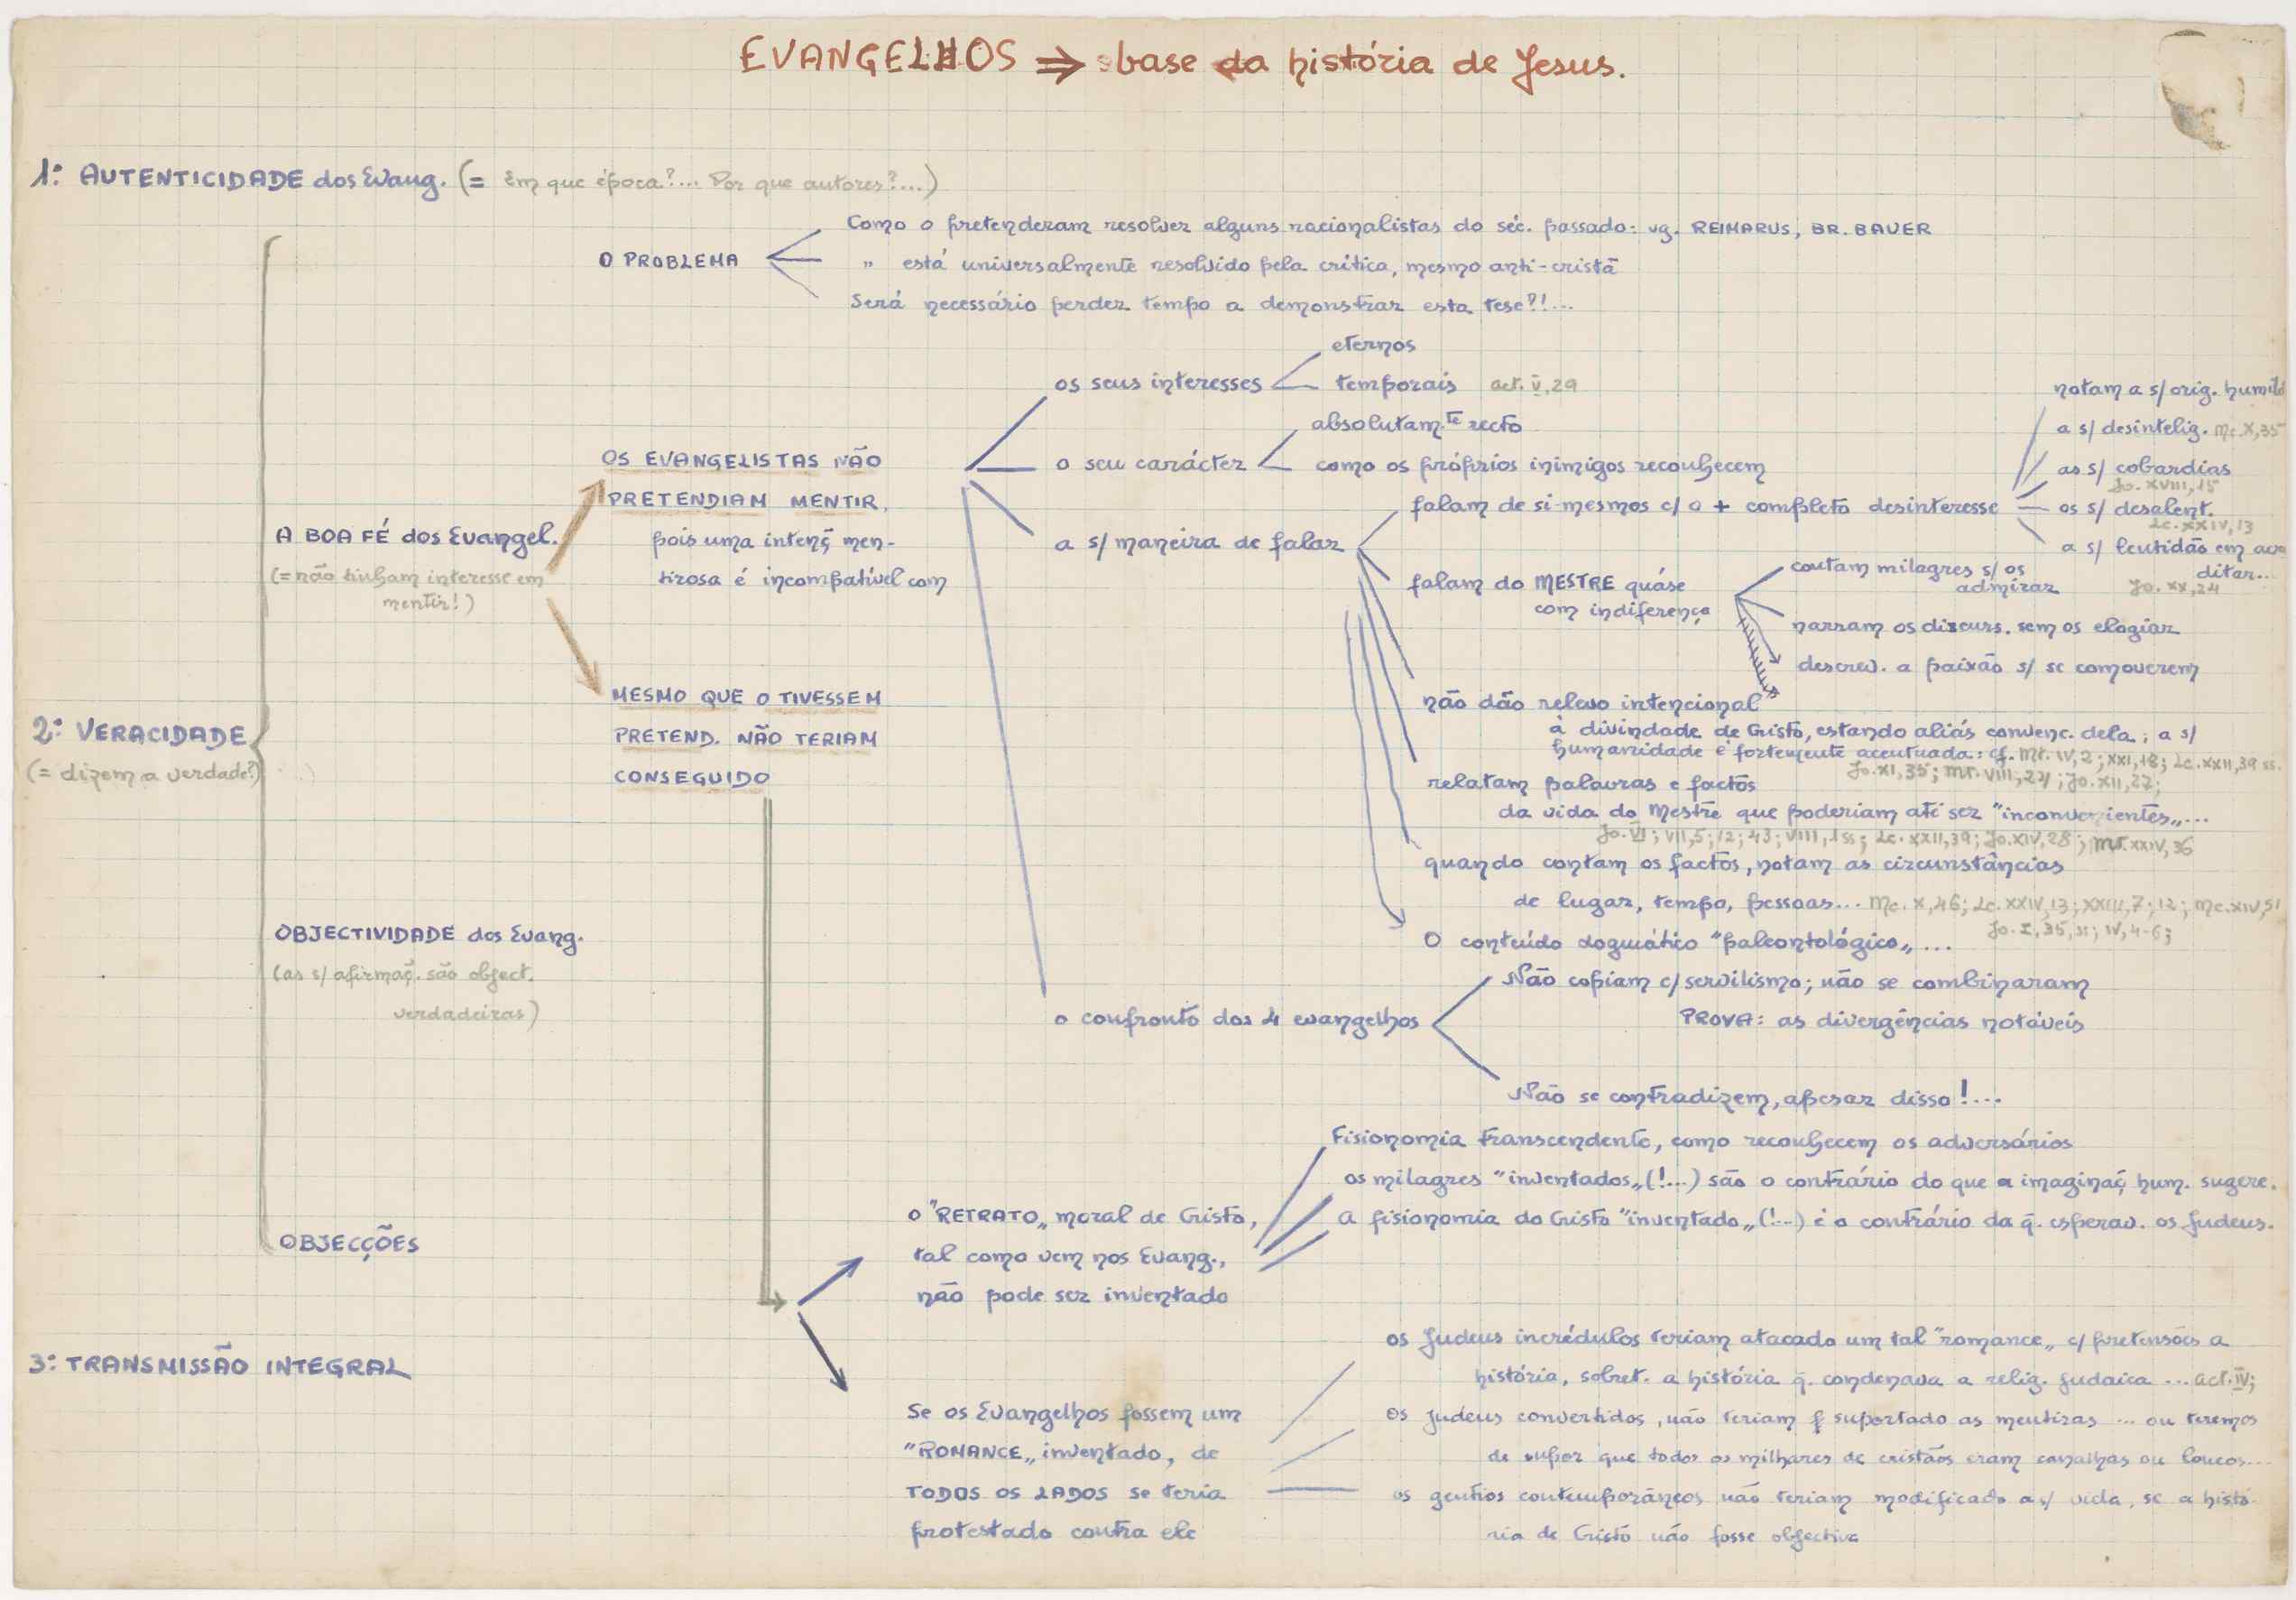 EVANGELHOS ⇒ base da história de Jesus.
1º: AUTENTICIDADE dos Evang. (= Em que época?... Por que autores?...)
O PROBLEMA
Como o pretenderam resolver alguns racionalistas do séc. passado: vg. REIMARUS, BR. BAUER
" está universalmente resolvido pela crítica, mesmo anti-cristã
Será necessário perder tempo a demonstrar esta tese?!...
2º: VERACIDADE
(= dizem a verdade?)
A BOA FÉ dos Evangel.
(= não tinham interesse em
mentir!)
OS EVANGELISTAS NÃO
PRETENDIAM MENTIR,
pois uma intenç. men-
tirosa é incompatível com
os seus interesses
eternos
temporais act. V, 29
o seu carácter
absolutam.te recto
como os próprios inimigos reconhecem
a s/ maneira de falar
falam de si-mesmos c/ o + completo desinteresse
notam a s/ orig. humild
a s/ desintelig. Mc. X, 35
as s/ cobardias
Jo. XVIII, 15
os s/ desalent.
Lc. XXIV, 13
a s/ lentidão em acre
ditar...
Jo. XX, 24
falam do MESTRE quáse
com indiferença
contam milagres s/ os
admirar
narram os discurs. sem os elogiar
descrev. a paixão s/ se comoverem
não dão relevo intencional
à divindade de Cristo, estando aliás convenc. dela; a s/
humanidade é fortemente acentuada: cf. Mt. IV, 2; XXI, 18; Lc. XXII, 39 ss.
Jo. XI, 35; Mt. VIII, 24; Jo. XII, 27;
relatam palavras e factos
da vida do Mestre que poderiam até ser "inconvenientes"...
Jo. VI; VII, 5; 12; 43; VIII, 1 ss; Lc. XXII, 39; Jo. XIV, 28; Mt. XXIV, 36
quando contam os factos, notam as circunstâncias
de lugar, tempo, pessoas... Mc. X, 46; Lc. XXIV, 13; XXIII, 7; 12; Mc. XIV, 51
Jo. I, 35, ss; IV, 4-6;
O conteúdo dogmático "paleontológico"...
o confronto dos 4 evangelhos
Não copiam c/ servilismo; não se combinaram
PROVA: as divergências notáveis
Não se contradizem, apesar disso!...
MESMO QUE O TIVESSEM
PRETEND. NÃO TERIAM
CONSEGUIDO
O "RETRATO" moral de Cristo,
tal como vem nos Evang.,
não pode ser inventado
Fisionomia transcendente, como reconhecem os adversários
os milagres "inventados" (!...) são o contrário do que a imaginaç. hum. sugere.
A fisionomia do Cristo "inventado" (!...) é o contrário da q. esperav. os Judeus.
Se os Evangelhos fossem um
"ROMANCE" inventado, de
TODOS OS LADOS se teria
protestado contra ele
os Judeus incrédulos teriam atacado um tal "romance" c/ pretensões a
história, sobret. a história q. condenava a relig. judaica ... act. IV;
os Judeus convertidos, não teriam suportado as mentiras ... ou teremos
de supor que todos os milhares de cristãos eram canalhas ou loucos...
os gentios contemporâneos não teriam modificado a s/ vida, se a histó-
ria de Cristo não fosse objectiva
OBJECTIVIDADE dos Evang.
(as s/ afirmaç. são object.
verdadeiras)
OBJECÇÕES
3º: TRANSMISSÃO INTEGRAL